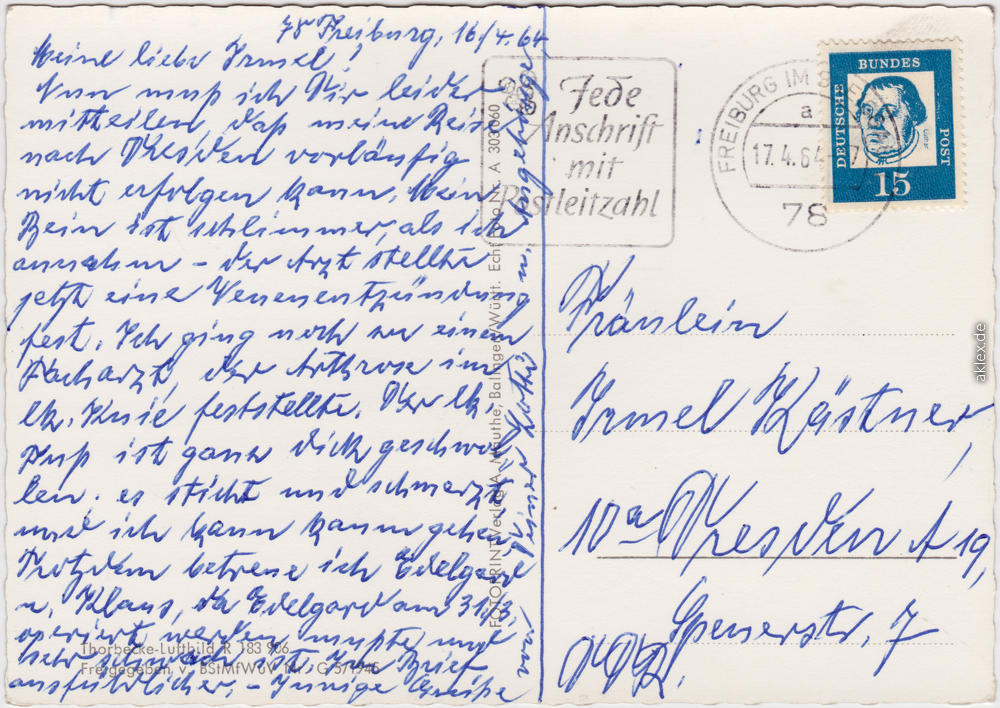 78 Freiburg, 16/4.64
Meine liebe Irmel!
Nun muß ich Dir leider
mitteilen, daß meine Reise
nach Dresden vorläufig
nicht erfolgen kann. Mein
Bein ist schlimmer, als ich
annahm – der Arzt stellte
jetzt eine Venenentzündung
fest. Ich ging noch zu einem
Facharzt, der Arthrose im
lk. Knie feststellte. Der lk.
Fuß ist ganz dick geschwol
len. es sticht und schmerzt
und ich kann kaum gehen
Trotzdem betreue ich Edelgard
u. Klaus, da Edelgard am 31./3.
operiert werden mußte und
sehr ist. Im Brief
ausführlicher. – Innige Grüße
von Deiner Lotte u. Angehörige
Thorbecke-Luftbild R 183 906
Freigegeben v. BStMfWuV Nr. G 5/1945
FOTOPRINT Verlag A. Mauthe, Balingen/Württ. Echt Foto Nr. A 303060
Jede
Anschrift
mit
Postleitzahl
FREIBURG IM
a
17.4.64
78
DEUTSCHE
BUNDES
POST
Luther
15
Fräulein
Irmel Kästner,
10a Dresden A 19,
Spenerstr. 7
DDR.
aklex.de